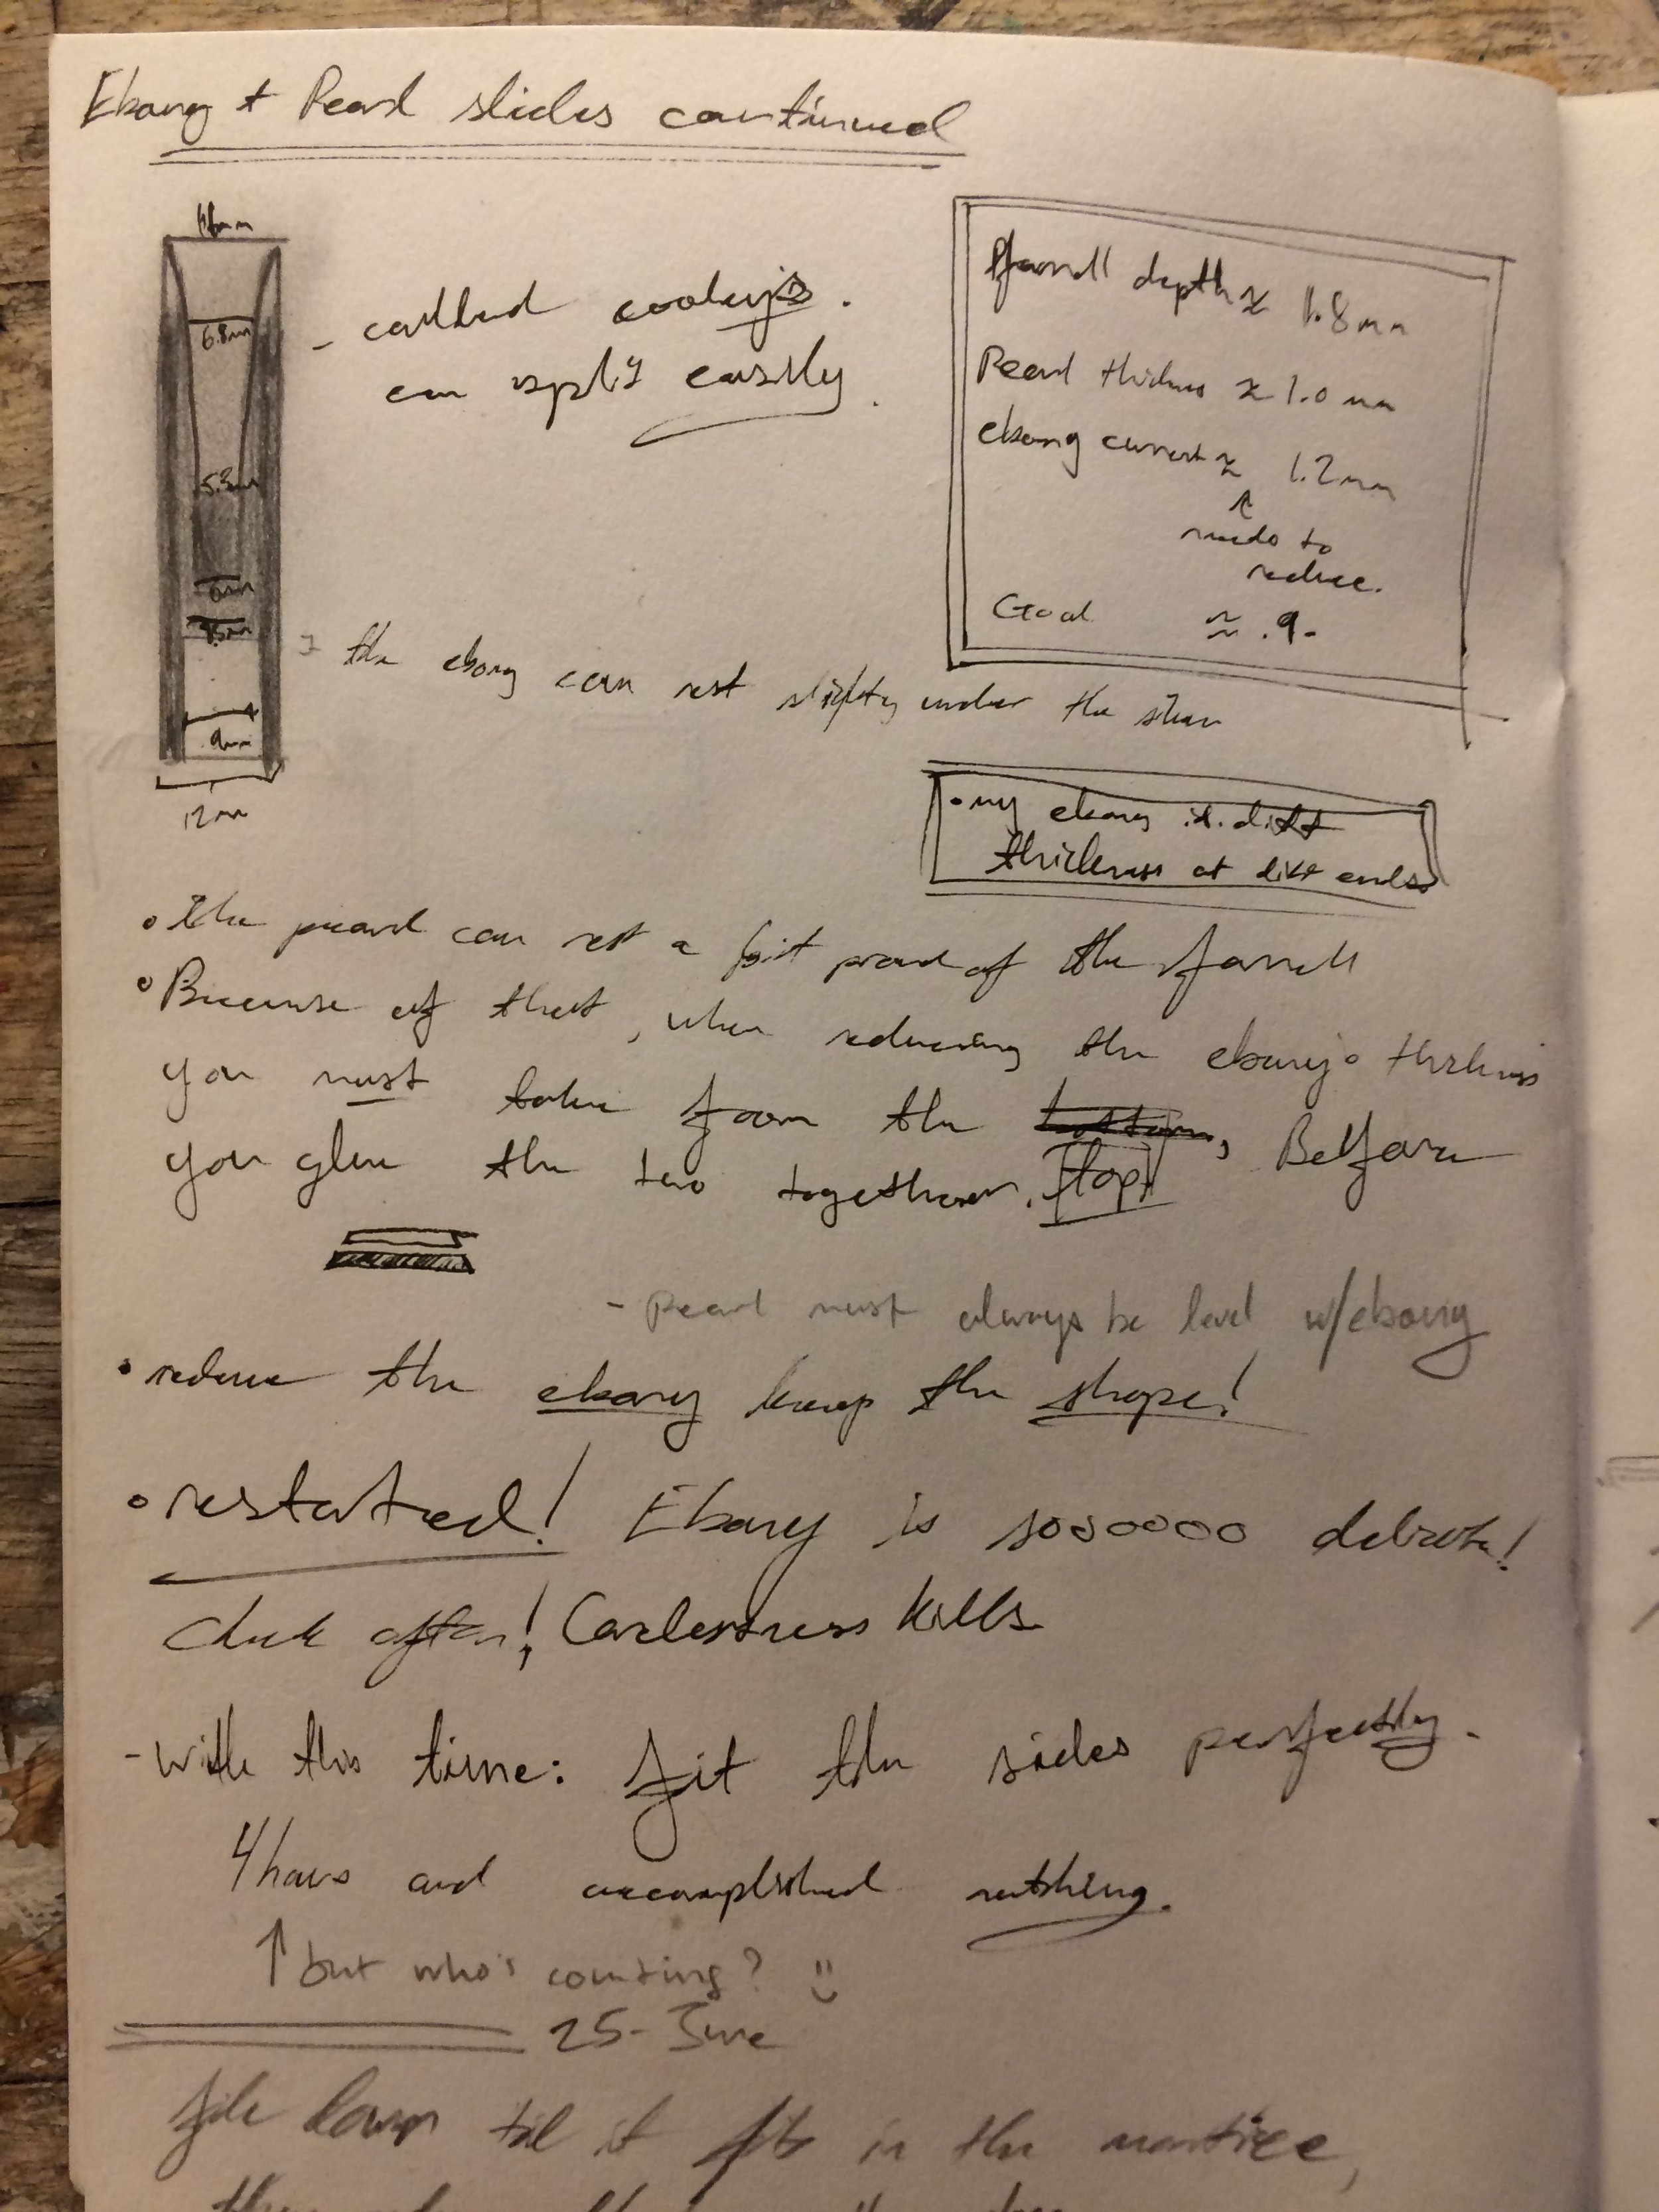 Ebony + Pearl slides continued
6.8mm
9mm
12mm
- called cooleyis.
can split easily.
fferrell depth ≈ 1.8mm
Pearl thickness ≈ 1.0 mm
ebony current ≈ 1.2mm
↑
needs to
reduce.
Goal ≈ .9-
the ebony can rest slightly under the silver
• my ebony is diff
thickness at diff ends
• The pearl can rest a bit proud of the ferrell
• Because of that, when reducing the ebony's thickness
you must take from the bottom, Before
top
you glue the two together.
- Pearl must always be level w/ebony
• reduce the ebony keep the shape!
• restarted! Ebony is sooooooo delicate!
Check often! Carelessness kills
- With this time: fit the sides perfectly.
4 hours and accomplished nothing.
↑ but who's counting?
25- June
file down til it fits in the mortice,